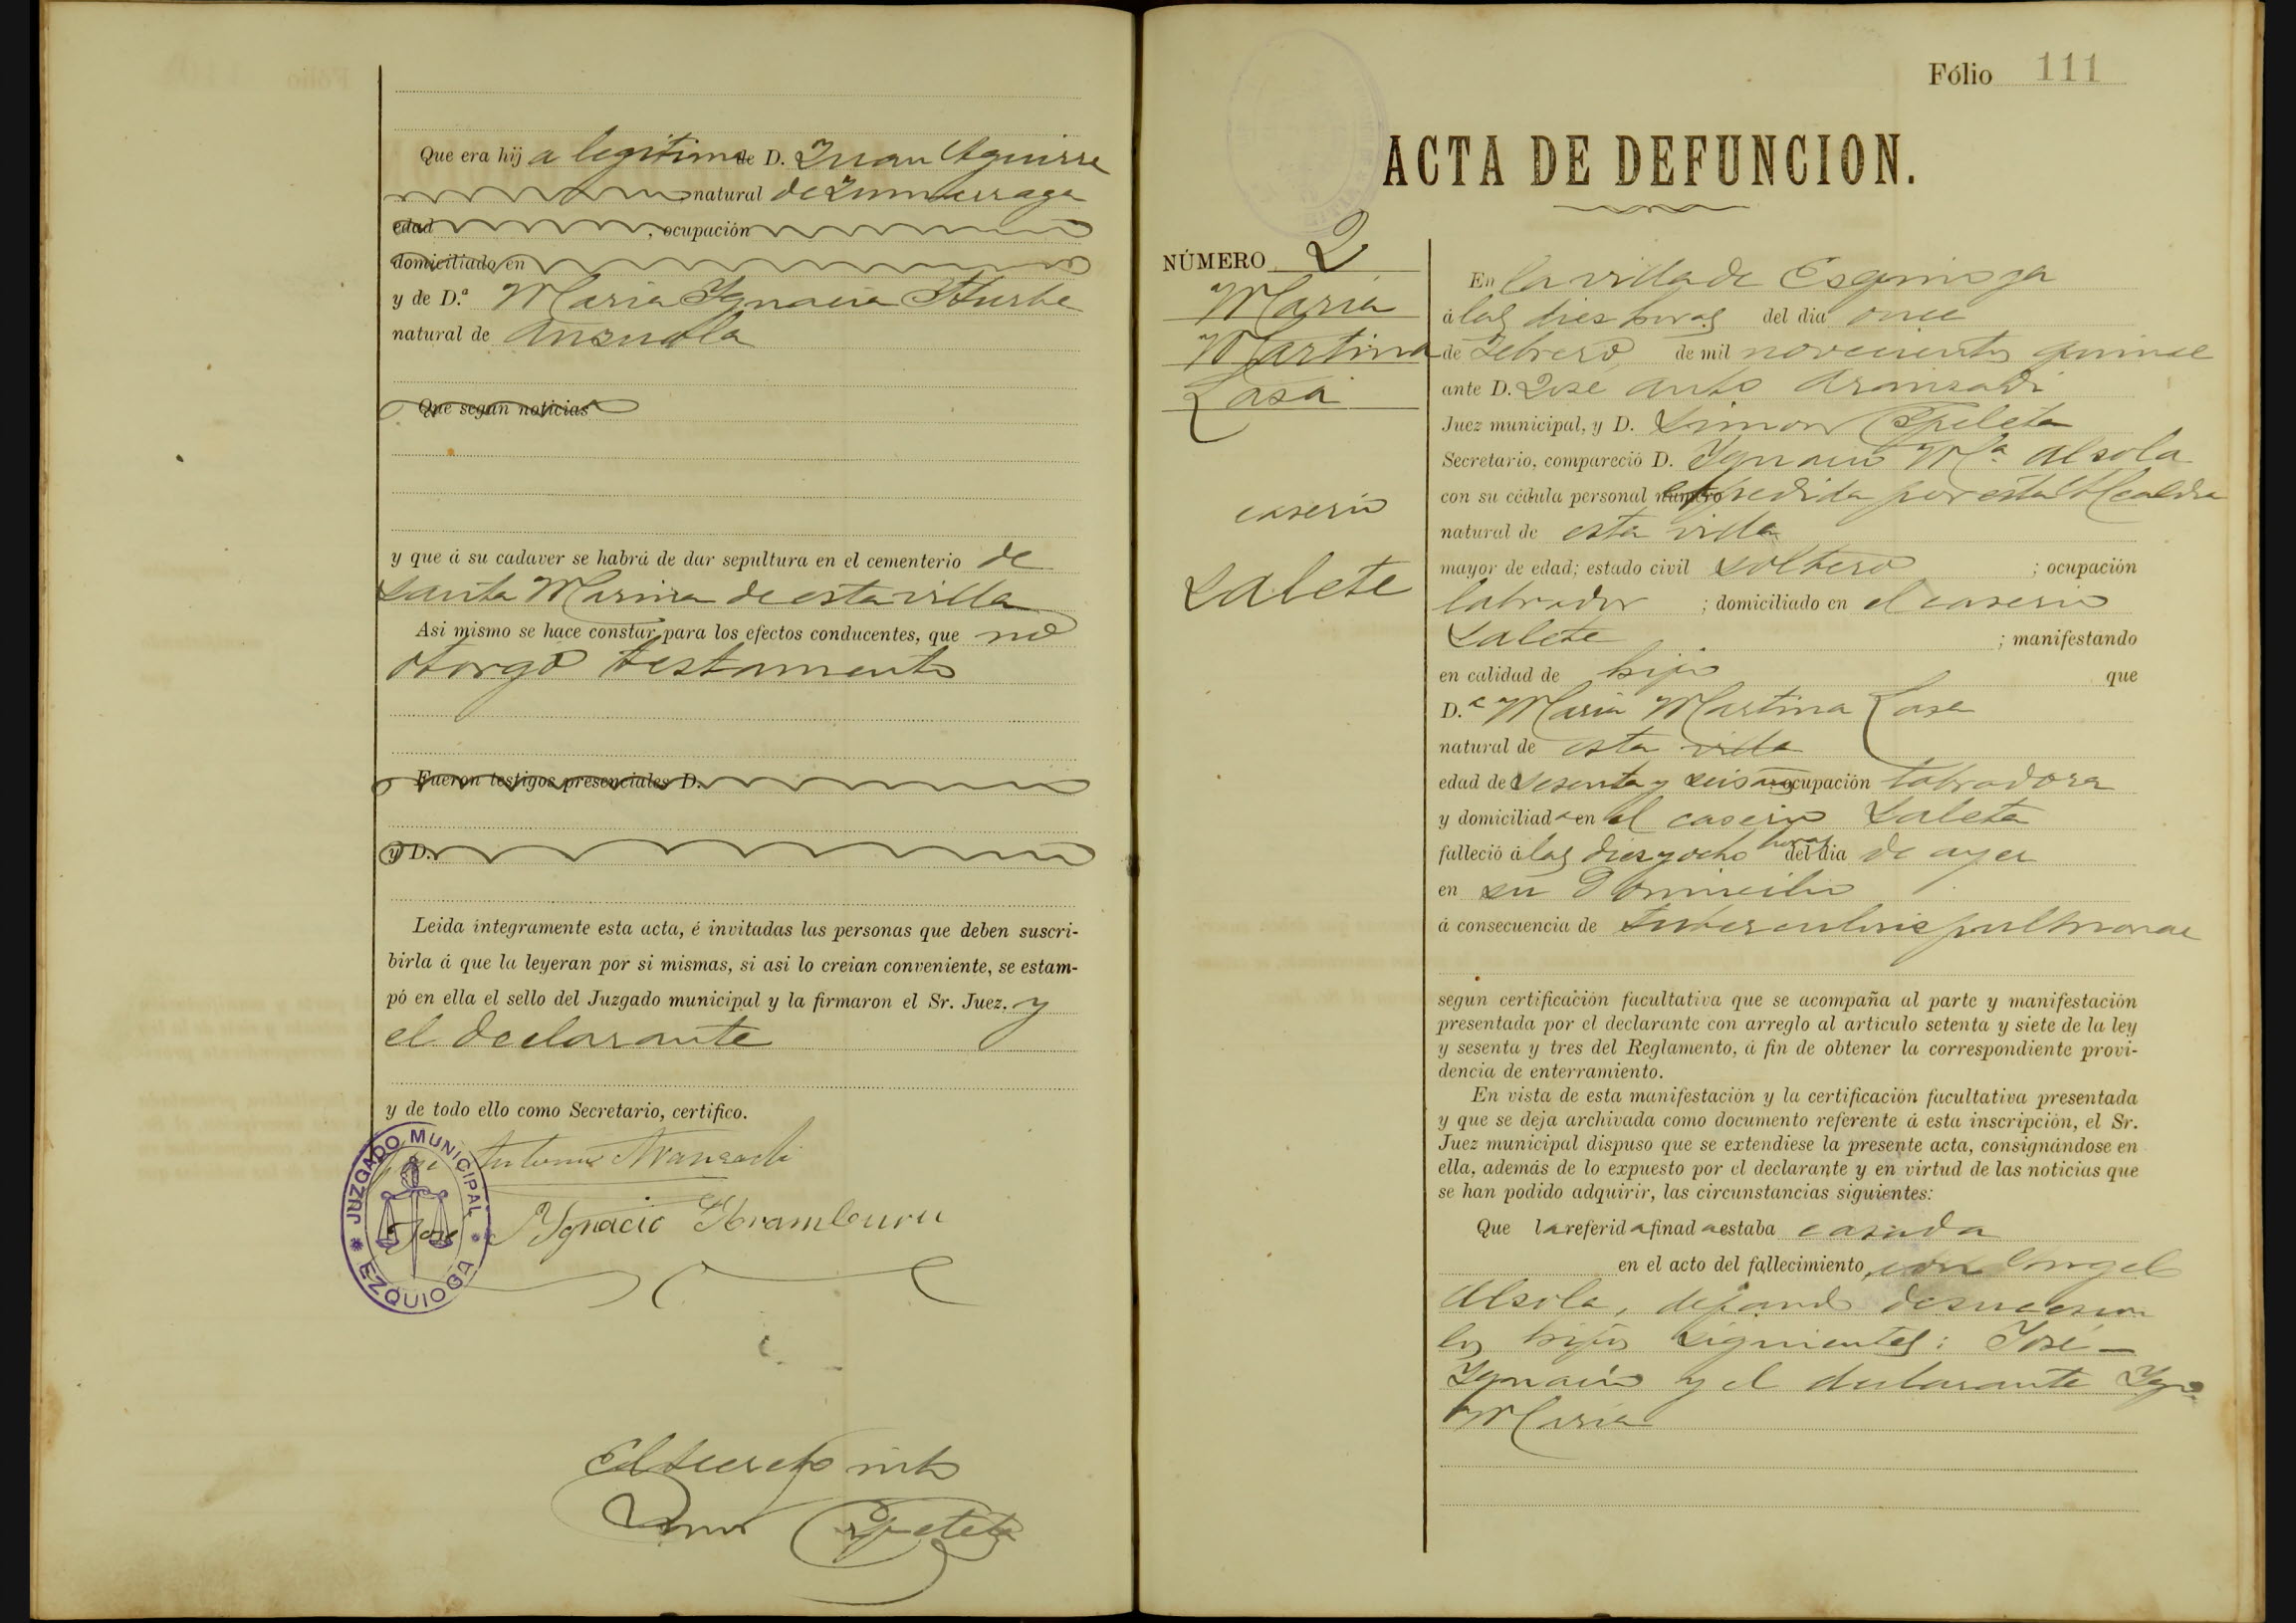 Que era hija legitima de D. Juan Aguirre
natural de Zumarraga
edad , ocupación
domiciliado en
y de D.ª Maria Ygnacia Yturbe
natural de Anzuola
Que segun noticias
y que á su cadaver se habrá de dar sepultura en el cementerio de
Santa Marina de esta villa
Asi mismo se hace constar para los efectos conducentes, que no
otorgó testamento
Fueron testigos presenciales D.
y D.
Leida integramente esta acta, é invitadas las personas que deben suscri-
birla á que la leyeran por si mismas, si asi lo creian conveniente, se estam-
pó en ella el sello del Juzgado municipal y la firmaron el Sr. Juez. y
el declarante
y de todo ello como Secretario, certifico.
José Antonio Aranzadi
José Ygnacio Aramburu
JUZGADO MUNICIPAL
EZQUIOGA
El Secreto into
Simon Ezpeleta
Fólio 111
ACTA DE DEFUNCION.
NÚMERO 2
Maria
Martina
Lasa
caserio
Zalete
En la villa de Esquioga
á las dies horas del dia once
de Febrero de mil novecientos quince
ante D. Jose Anto Aranzadi
Juez municipal, y D. Simon Ezpeleta
Secretario, compareció D. Ygnacio Mª Alsola
con su cédula personal número expedida por esta Alcaldia
natural de esta villa
mayor de edad; estado civil soltero ; ocupación
labrador ; domiciliado en el caserio
Zalete ; manifestando
en calidad de hijo que
D.ª Maria Martina Lasa
natural de esta villa
edad de sesenta y seis años ocupación labradora
y domiciliada en el caserio Zaleta
falleció á las diez y ocho horas del dia de ayer
en su Domicilio
á consecuencia de tuberculosis pulmonar
segun certificación facultativa que se acompaña al parte y manifestación
presentada por el declarante con arreglo al articulo setenta y siete de la ley
y sesenta y tres del Reglamento, á fin de obtener la correspondiente provi-
dencia de enterramiento.
En vista de esta manifestación y la certificación facultativa presentada
y que se deja archivada como documento referente á esta inscripción, el Sr.
Juez municipal dispuso que se extendiese la presente acta, consignándose en
ella, además de lo expuesto por el declarante y en virtud de las noticias que
se han podido adquirir, las circunstancias siguientes:
Que la referida finada estaba casada
en el acto del fallecimiento, con Angel
Alsola, dejando de sucesion
los hijos siguientes: José –
Ygnacio y el declarante Ygno
Maria